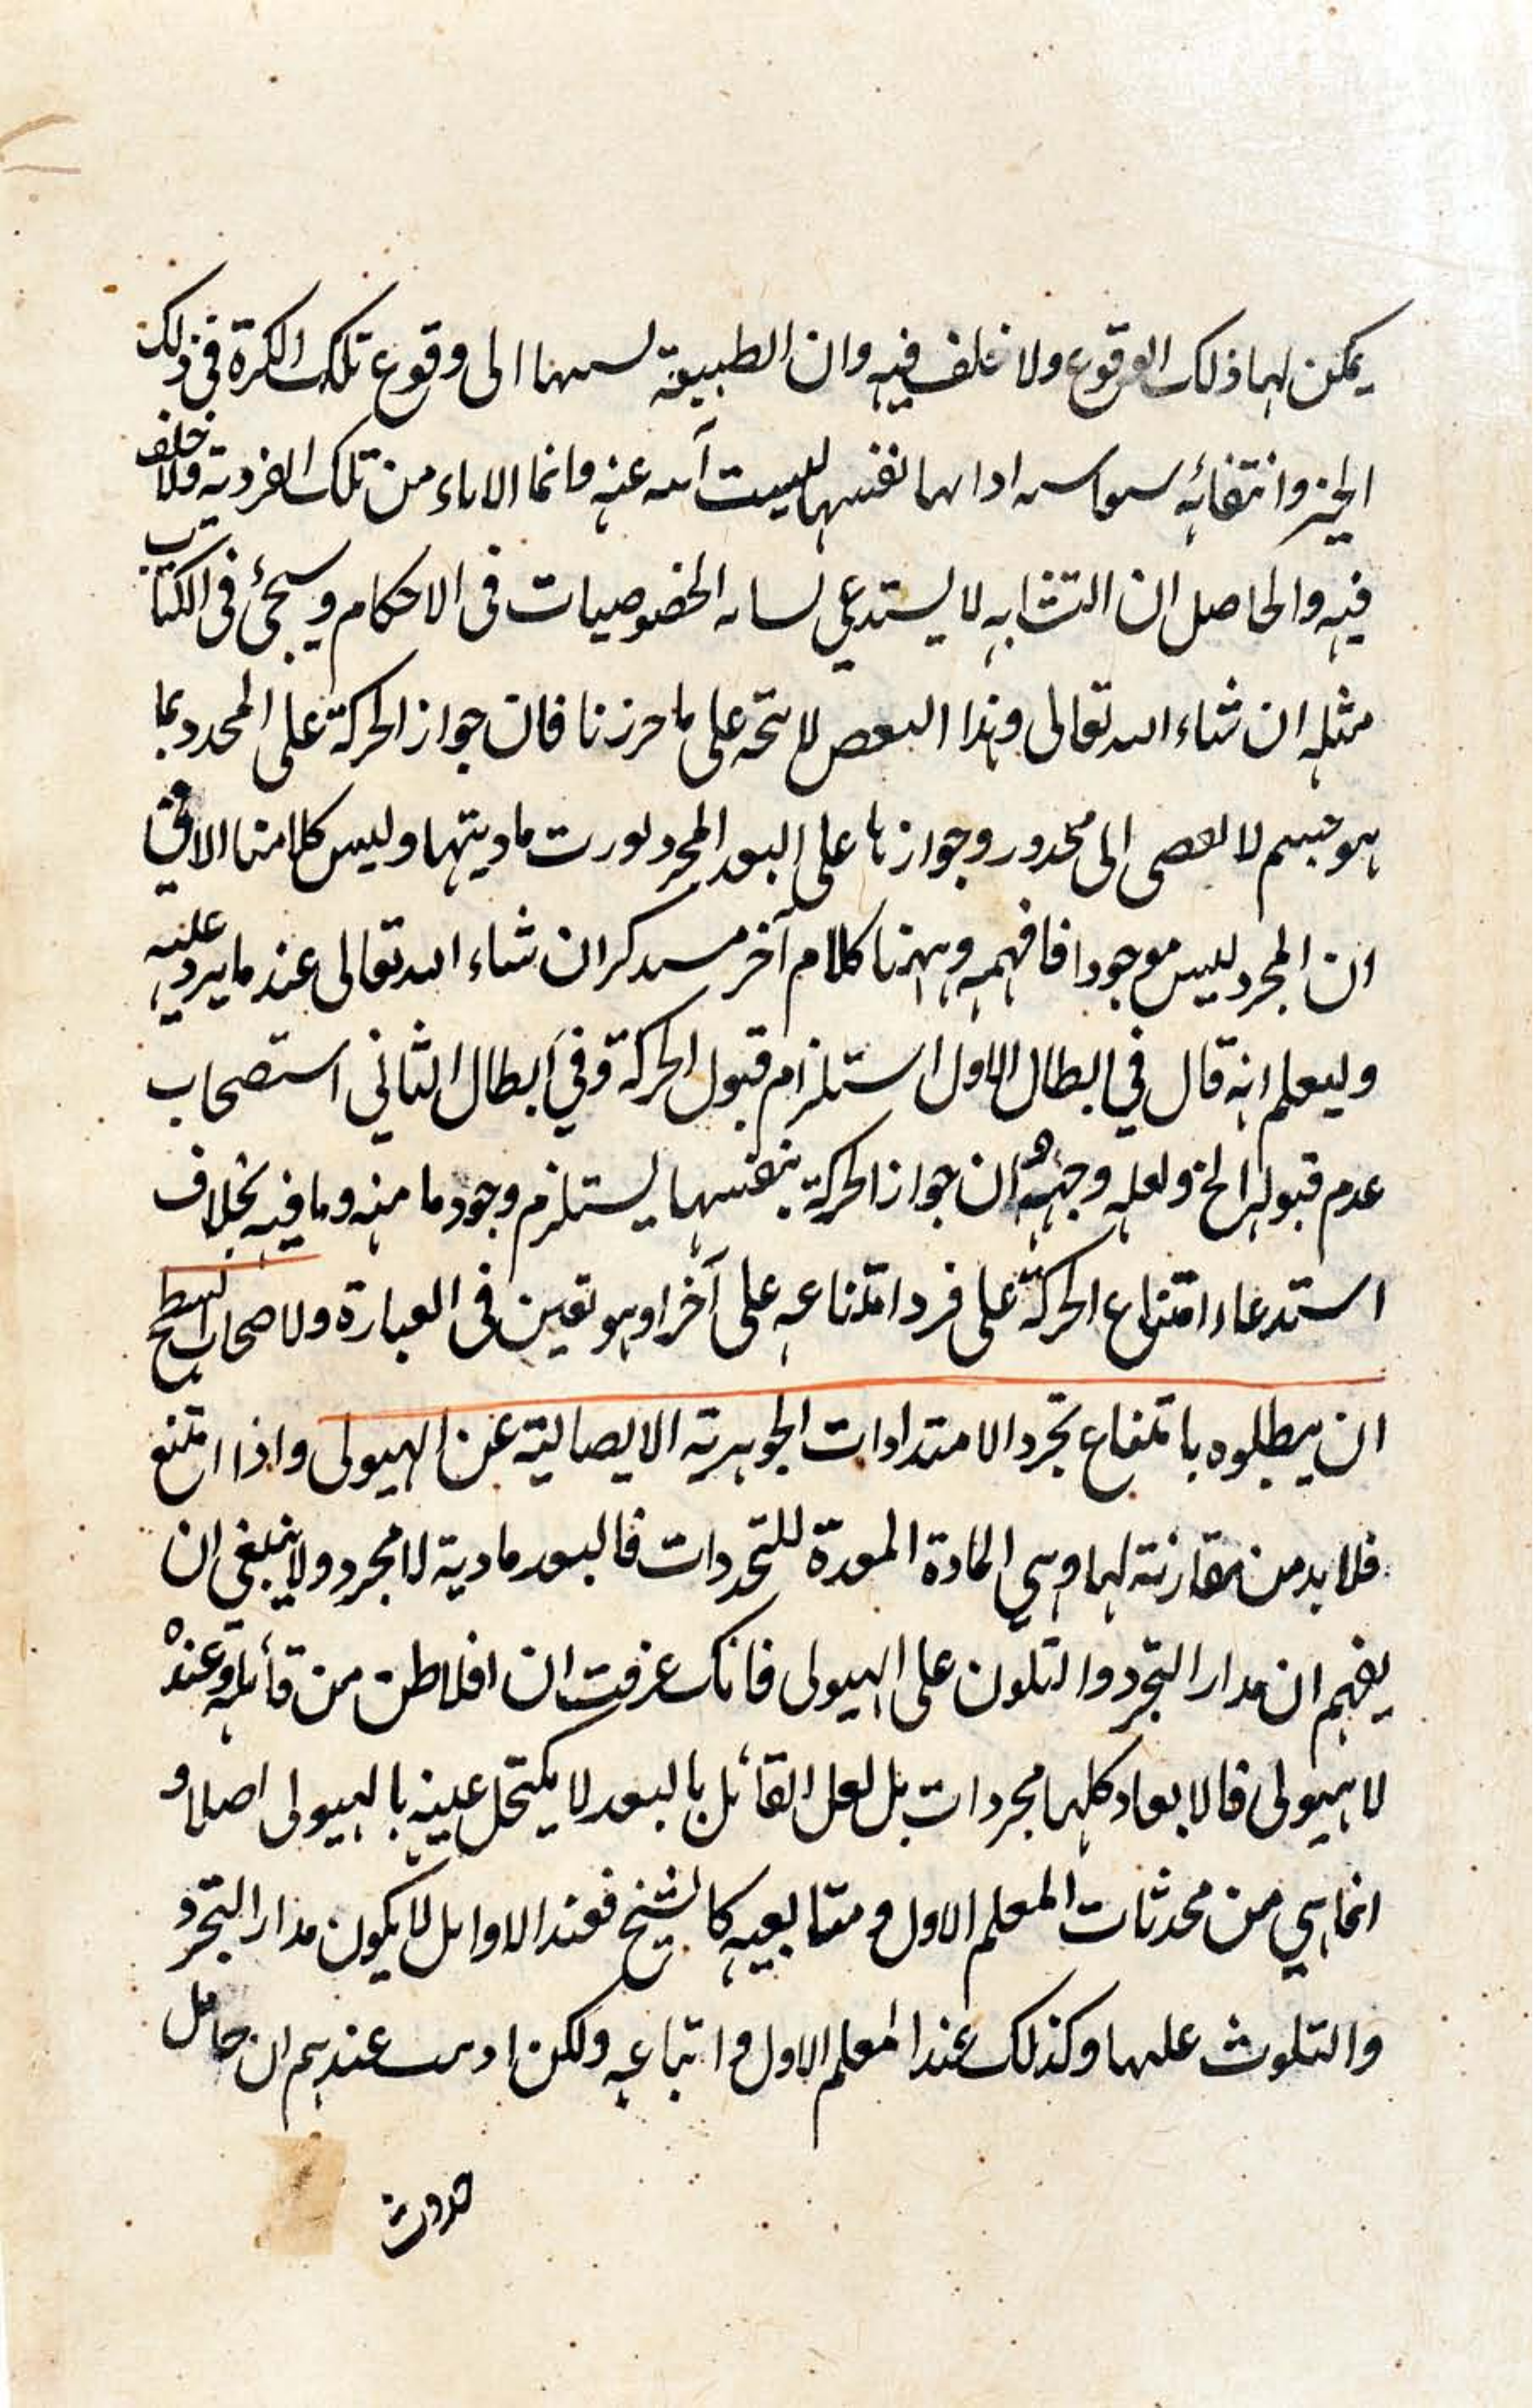 يمكن لها ذلك الوقوع ولا خلف فيه وان الطبيعة الى وقوع تلك الكرة في ذلك
الحيز وانتفائه نفسها ليست عنه وانما الاباء من تلك الفردية ولا خلف
فيه والحاصل ان التشابه لا يستدعي الخصوصيات في الاحكام وسيجئ في الكتاب
مثله ان شاء الله تعالى وهذا لا يتجه على ما حررنا فان جواز الحركة على المحدد بما
هو جسم لا الى محذور وجوازها على البعد المجرد ماديتها وليس كلامنا الا في
ان المجرد ليس موجودا فافهمه وههنا كلام آخر ان شاء الله تعالى عند ما يرد عليه
وليعلم انه قال في ابطال الاول استلزام قبول الحركة وفي ابطال الثاني استصحاب
عدم قبولها الخ ولعله وجهه ان جواز الحركة بنفسها يستلزم وجود ما منه وما فيه بخلاف
استدعاء امتناع الحركة على فرد امتناعه على آخر او هو تفنن في العبارة ولاصحاب السطح
ان يبطلوه بامتناع تجرد الامتدادات الجوهرية الايصالية عن الهيولى واذا امتنع
فلا بد من مقارنته لها وهي المادة المعدة للتجردات فالبعد مادية لا مجرد ولا ينبغي ان
يفهم ان مدار التجرد والتلون على الهيولى فانك عرفت ان افلاطن من قائله وعنده
لا هيولى فالابعاد كلها مجردات بل لعل القائل بالبعد لا يكتحل عينه بالهيولى اصلا و
انما هي من محدثات المعلم الاول ومتابعيه كالشيخ فعند الاوايل لا يكون مدار التجرد
والتلوث عليها وكذلك عند المعلم الاول واتباعه ولكن عندهم ان حامل